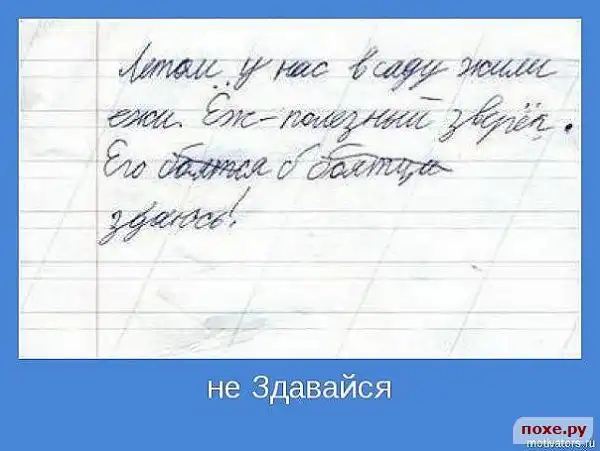 Летом у нас в саду жили
ежи. Ёж - полезный зверёк.
Его боятся б боятця
здаюсь!
не Здавайся
похе.ру
motivators.ru